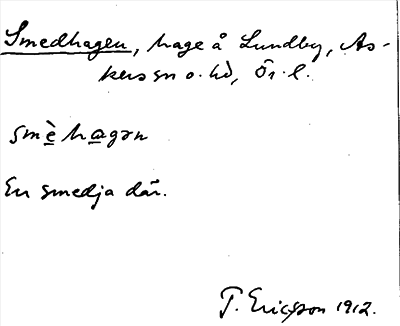 Smedhagen, hage å Lundby, As-
kers sn o. hd, Ör. l.
smè hagən
En smedja där.
T. Ericsson 1912.